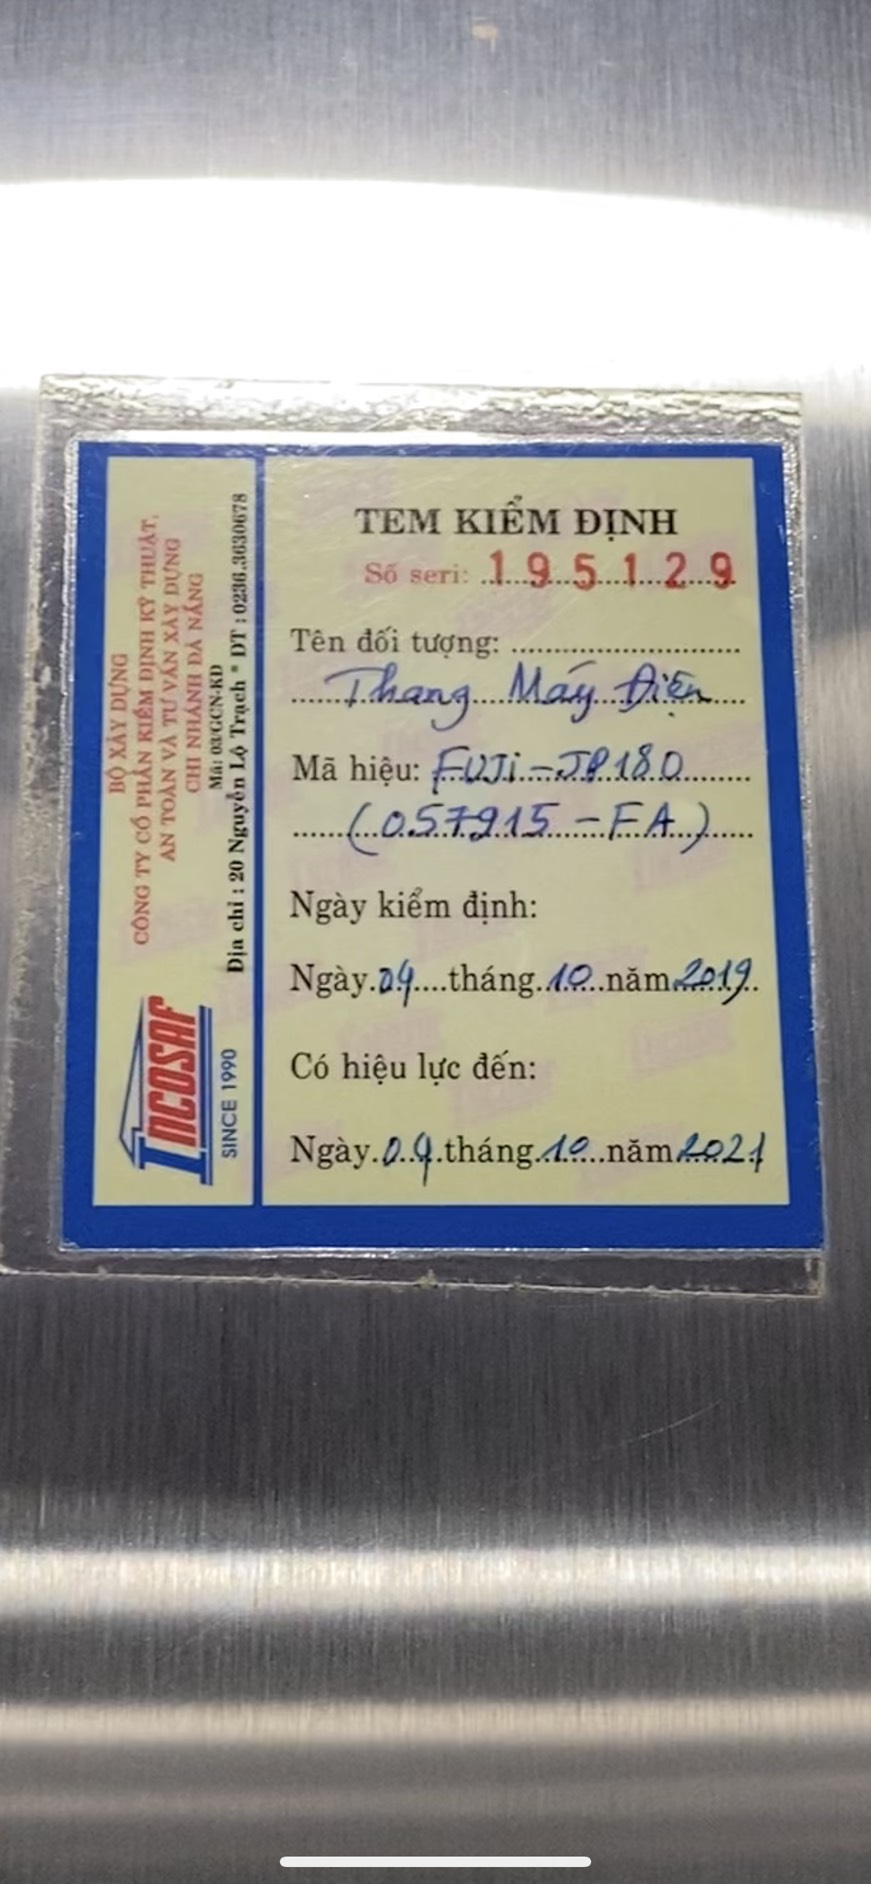 BỘ XÂY DỰNG
CÔNG TY CỔ PHẦN KIỂM ĐỊNH KỸ THUẬT,
AN TOÀN VÀ TƯ VẤN XÂY DỰNG
CHI NHÁNH ĐÀ NẴNG
Mã: 03/GCN-KĐ
Địa chỉ : 20 Nguyễn Lộ Trạch * ĐT : 0236.3630678
INCOSAF
SINCE 1990
TEM KIỂM ĐỊNH
Số seri: 195129
Tên đối tượng:
Thang Máy Điện
Mã hiệu: FUJi-JP180
(057915-FA)
Ngày kiểm định:
Ngày 09 tháng 10 năm 2019
Có hiệu lực đến:
Ngày 09 tháng 10 năm 2021